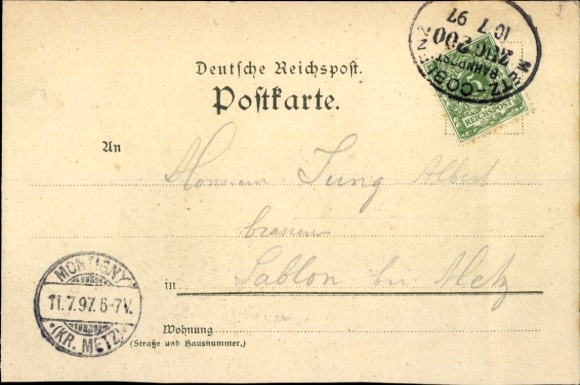 METZ COBLENZ
BAHNPOST
ZUG 200
10 7 97
Deutsche Reichspost.
Postkarte.
5
REICHSPOST
An
Monsieur Jung Albert
Sablon bei Metz
in
MONTIGNY
11.7.97. 6-7V.
*(KR. METZ)*
Wohnung
(Straße und Hausnummer.)